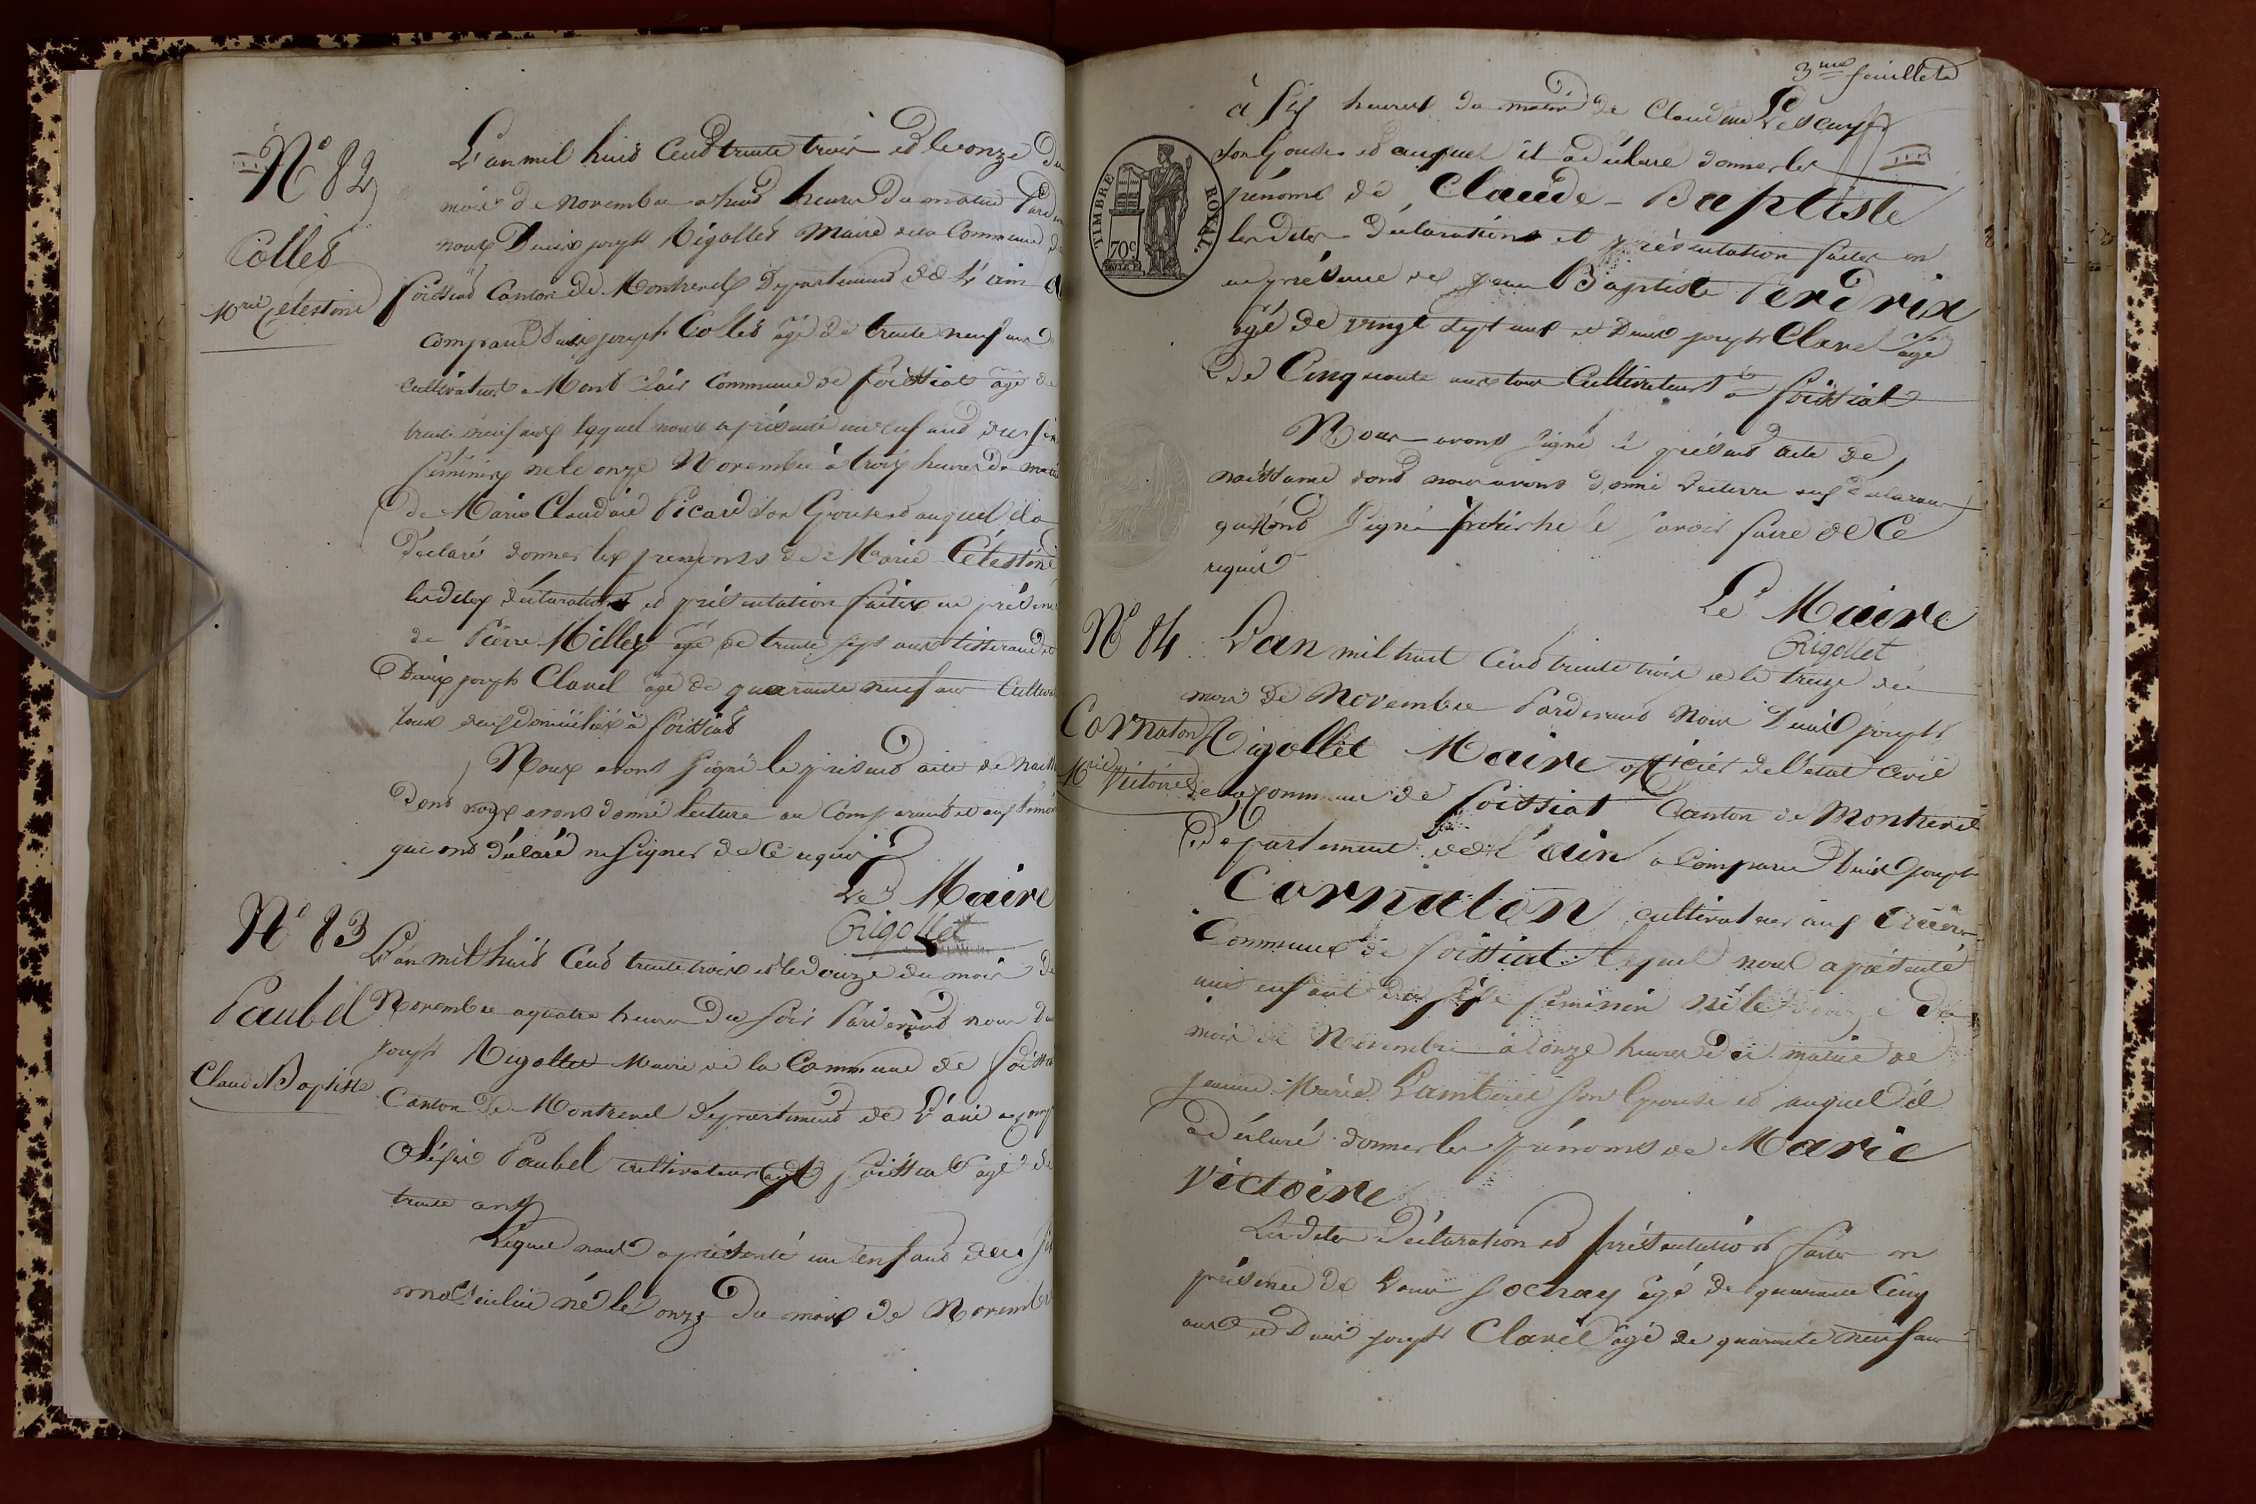 N° 82
Collet
Mrie Celestine
L'an mil huit Cent trente trois et le onze du
mois de Novembre a huit heures du matin Pardev
nous Denis joseph Rigollet Maire de la Commune de
foissiat Canton de Montrevel Departement de L'ain a
comparu Denis joseph Collet agé de trente neuf ans
cultivateur a Mont commune de foissiat agé de
trente neuf ans lequel nous a présenté un enfant du sex
féminin né le onze Novembre à trois heures du matin
de Marie Claudine Picard son Epouse et auquel il a
déclaré donner les prenoms de Marie Célestine
les dites déclaration et présentation faites en présen
de Pierre Millet agé de trente sept ans tisserand et
Denis joseph Clavel agé de quarante neuf ans Cultiv
tous deux domiciliés à foissiat
Nous avons signé le présent acte de naiss
dont nous avons donné lecture au Comparant et aux témoi
qui ont déclaré ne signer de Ce requis
Le Maire
Rigollet
N° 83
Paubel
Claude Baptiste
L'an mil huit Cent trente trois et le douze du mois de
Novembre a quatre heures du soir Pardevant nous De
joseph Rigollet Maire de la Commune de foissiat
Canton de Montrevel département de L'ain a comp
Paubel cultivateur foissiat agé de
trente ans
Lequel nous a présenté un enfant du se
masculin né le onze du mois de Novembre
3me feuillet
à six heures du matin de Claudine
son Epouse et auquel il a déclaré donner les
prénoms de Claude-Baptiste
les dites déclarations et présentation faites en
en présence de jean Baptiste Perdrix
agé de vingt sept ans et Denis joseph Clavel agé
de Cinquante ans tous Cultivateurs à foissiat
TIMBRE ROYAL
70c
Nous avons signé le présent acte de
naissance dont nous avons donné Lecture aux déclarans
qui ont signé le savoir faire de Ce
requis
Le Maire
Rigollet
N° 84
Cornaton
Mrie Victoire
L'an mil huit Cent trente trois et le treize du
mois de Novembre Pardevant Nous Denis joseph
Rigollet Maire officier de l'etat Civil
de la commune de foissiat Canton de Montrevel
Département de l'ain a Comparu Denis Joseph
Cornaton cultivateur aux
Commune de foissiat lequel nous a présenté
un enfant du sexe féminin né le douze du
mois de Novembre à onze heures du matin de
jeanne Marie son Epouse et auquel il
a déclaré donner les prénoms de Marie
Victoire
Les dites déclaration et présentation faites en
présence de Denis Sochay agé de quarante Cinq
ans et Denis joseph Clavel agé de quarante neuf ans